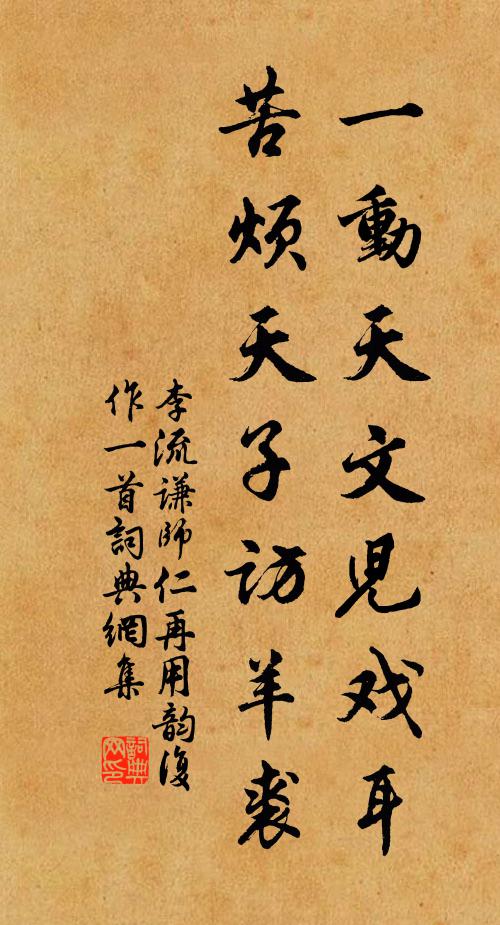 一動天文児戏耳
苦烦天子访羊裘
李流谦師仁再用韵復
作一首詞典網集
詞典网印